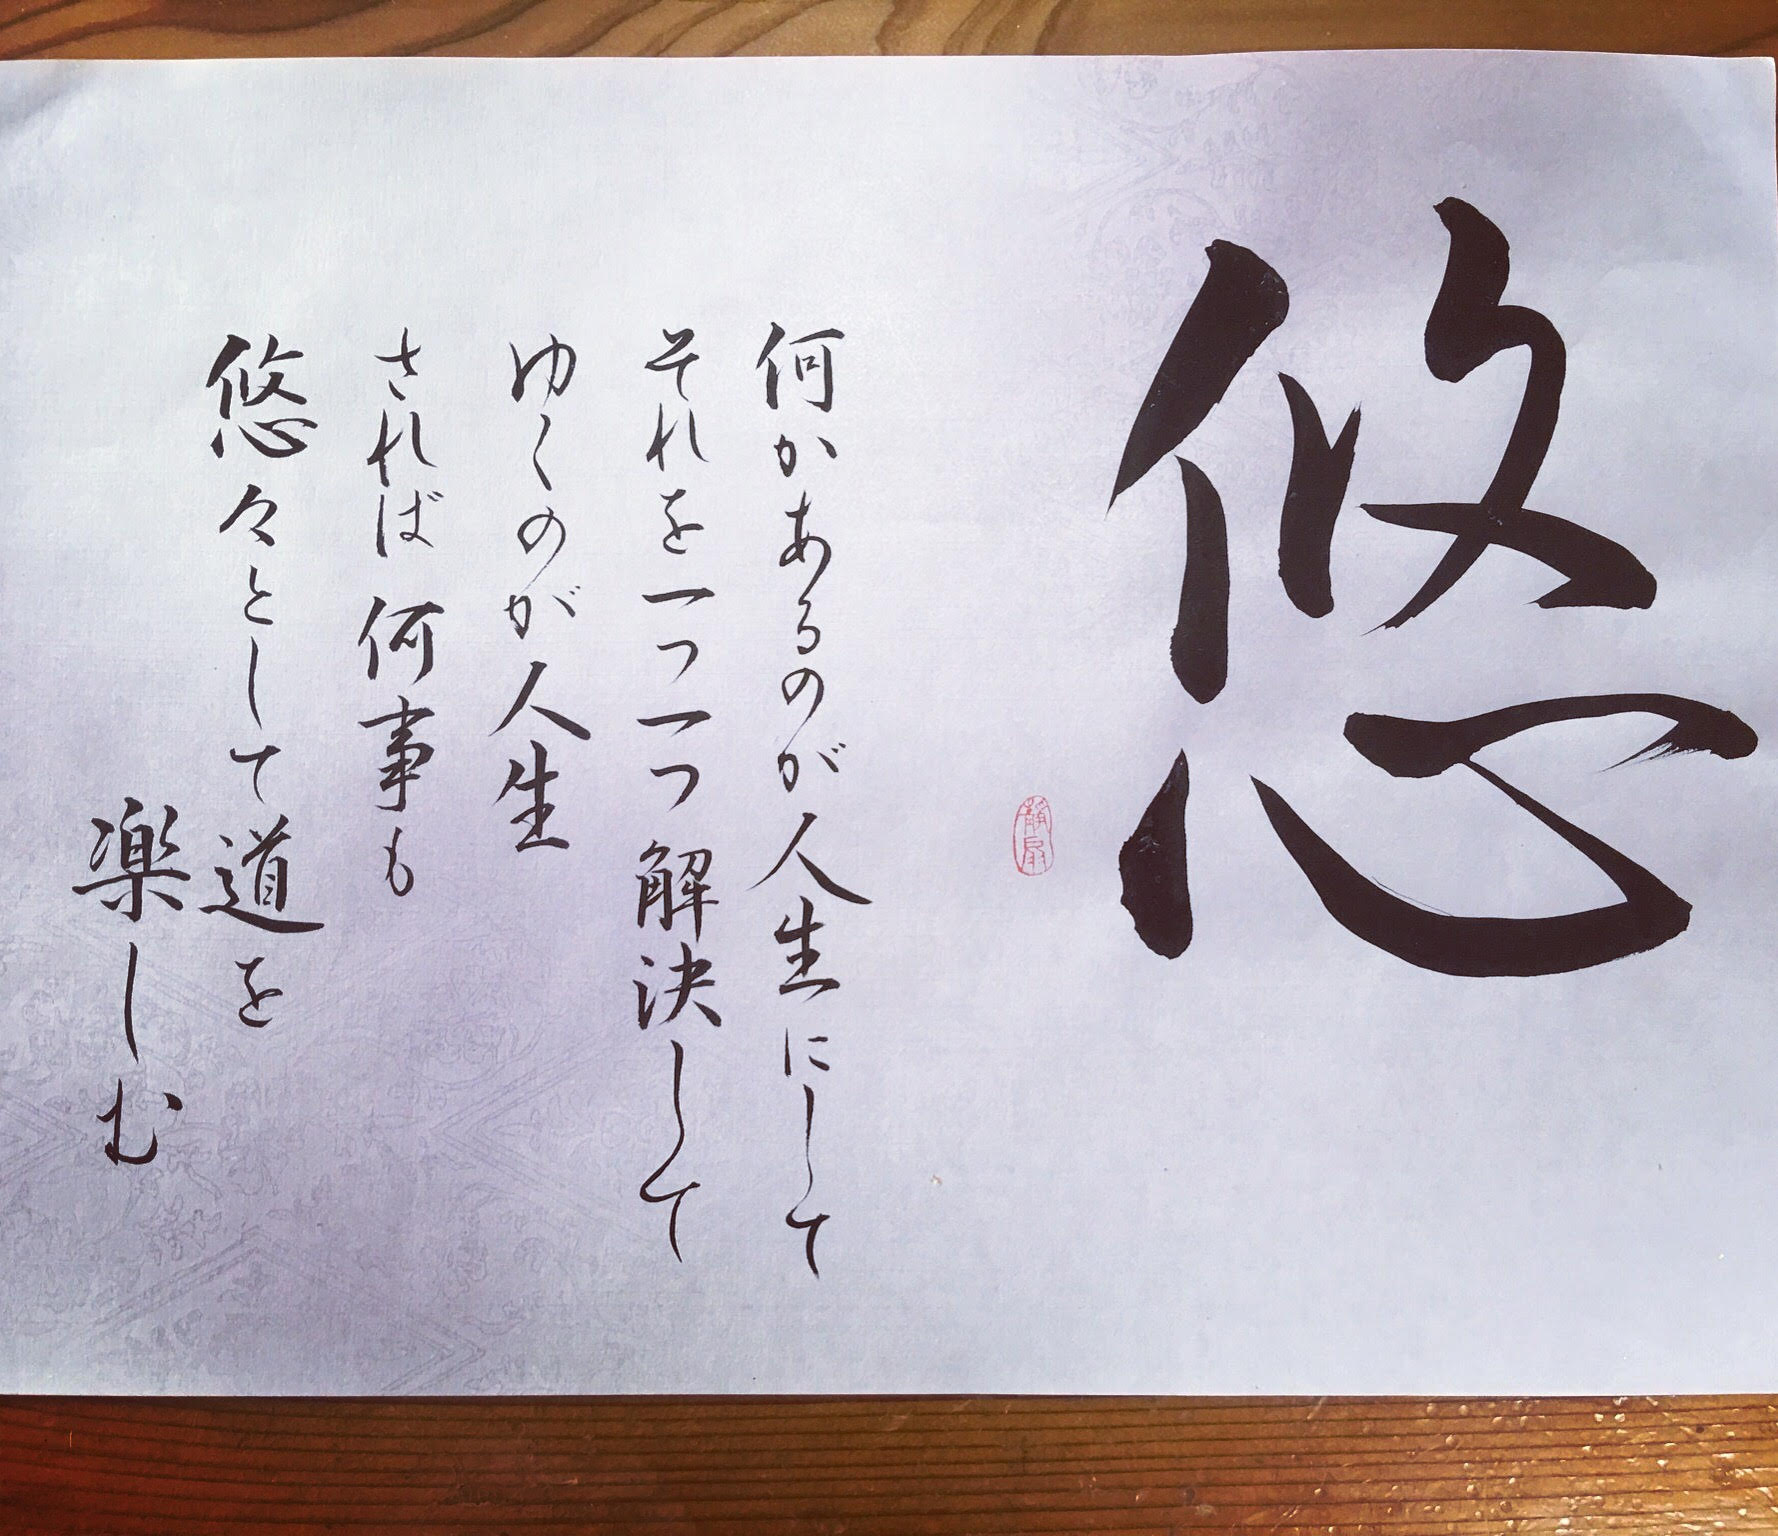 悠
何かあるのが人生にして
それを一つ一つ解決して
ゆくのが人生
されば何事も
悠々として道を
楽しむ